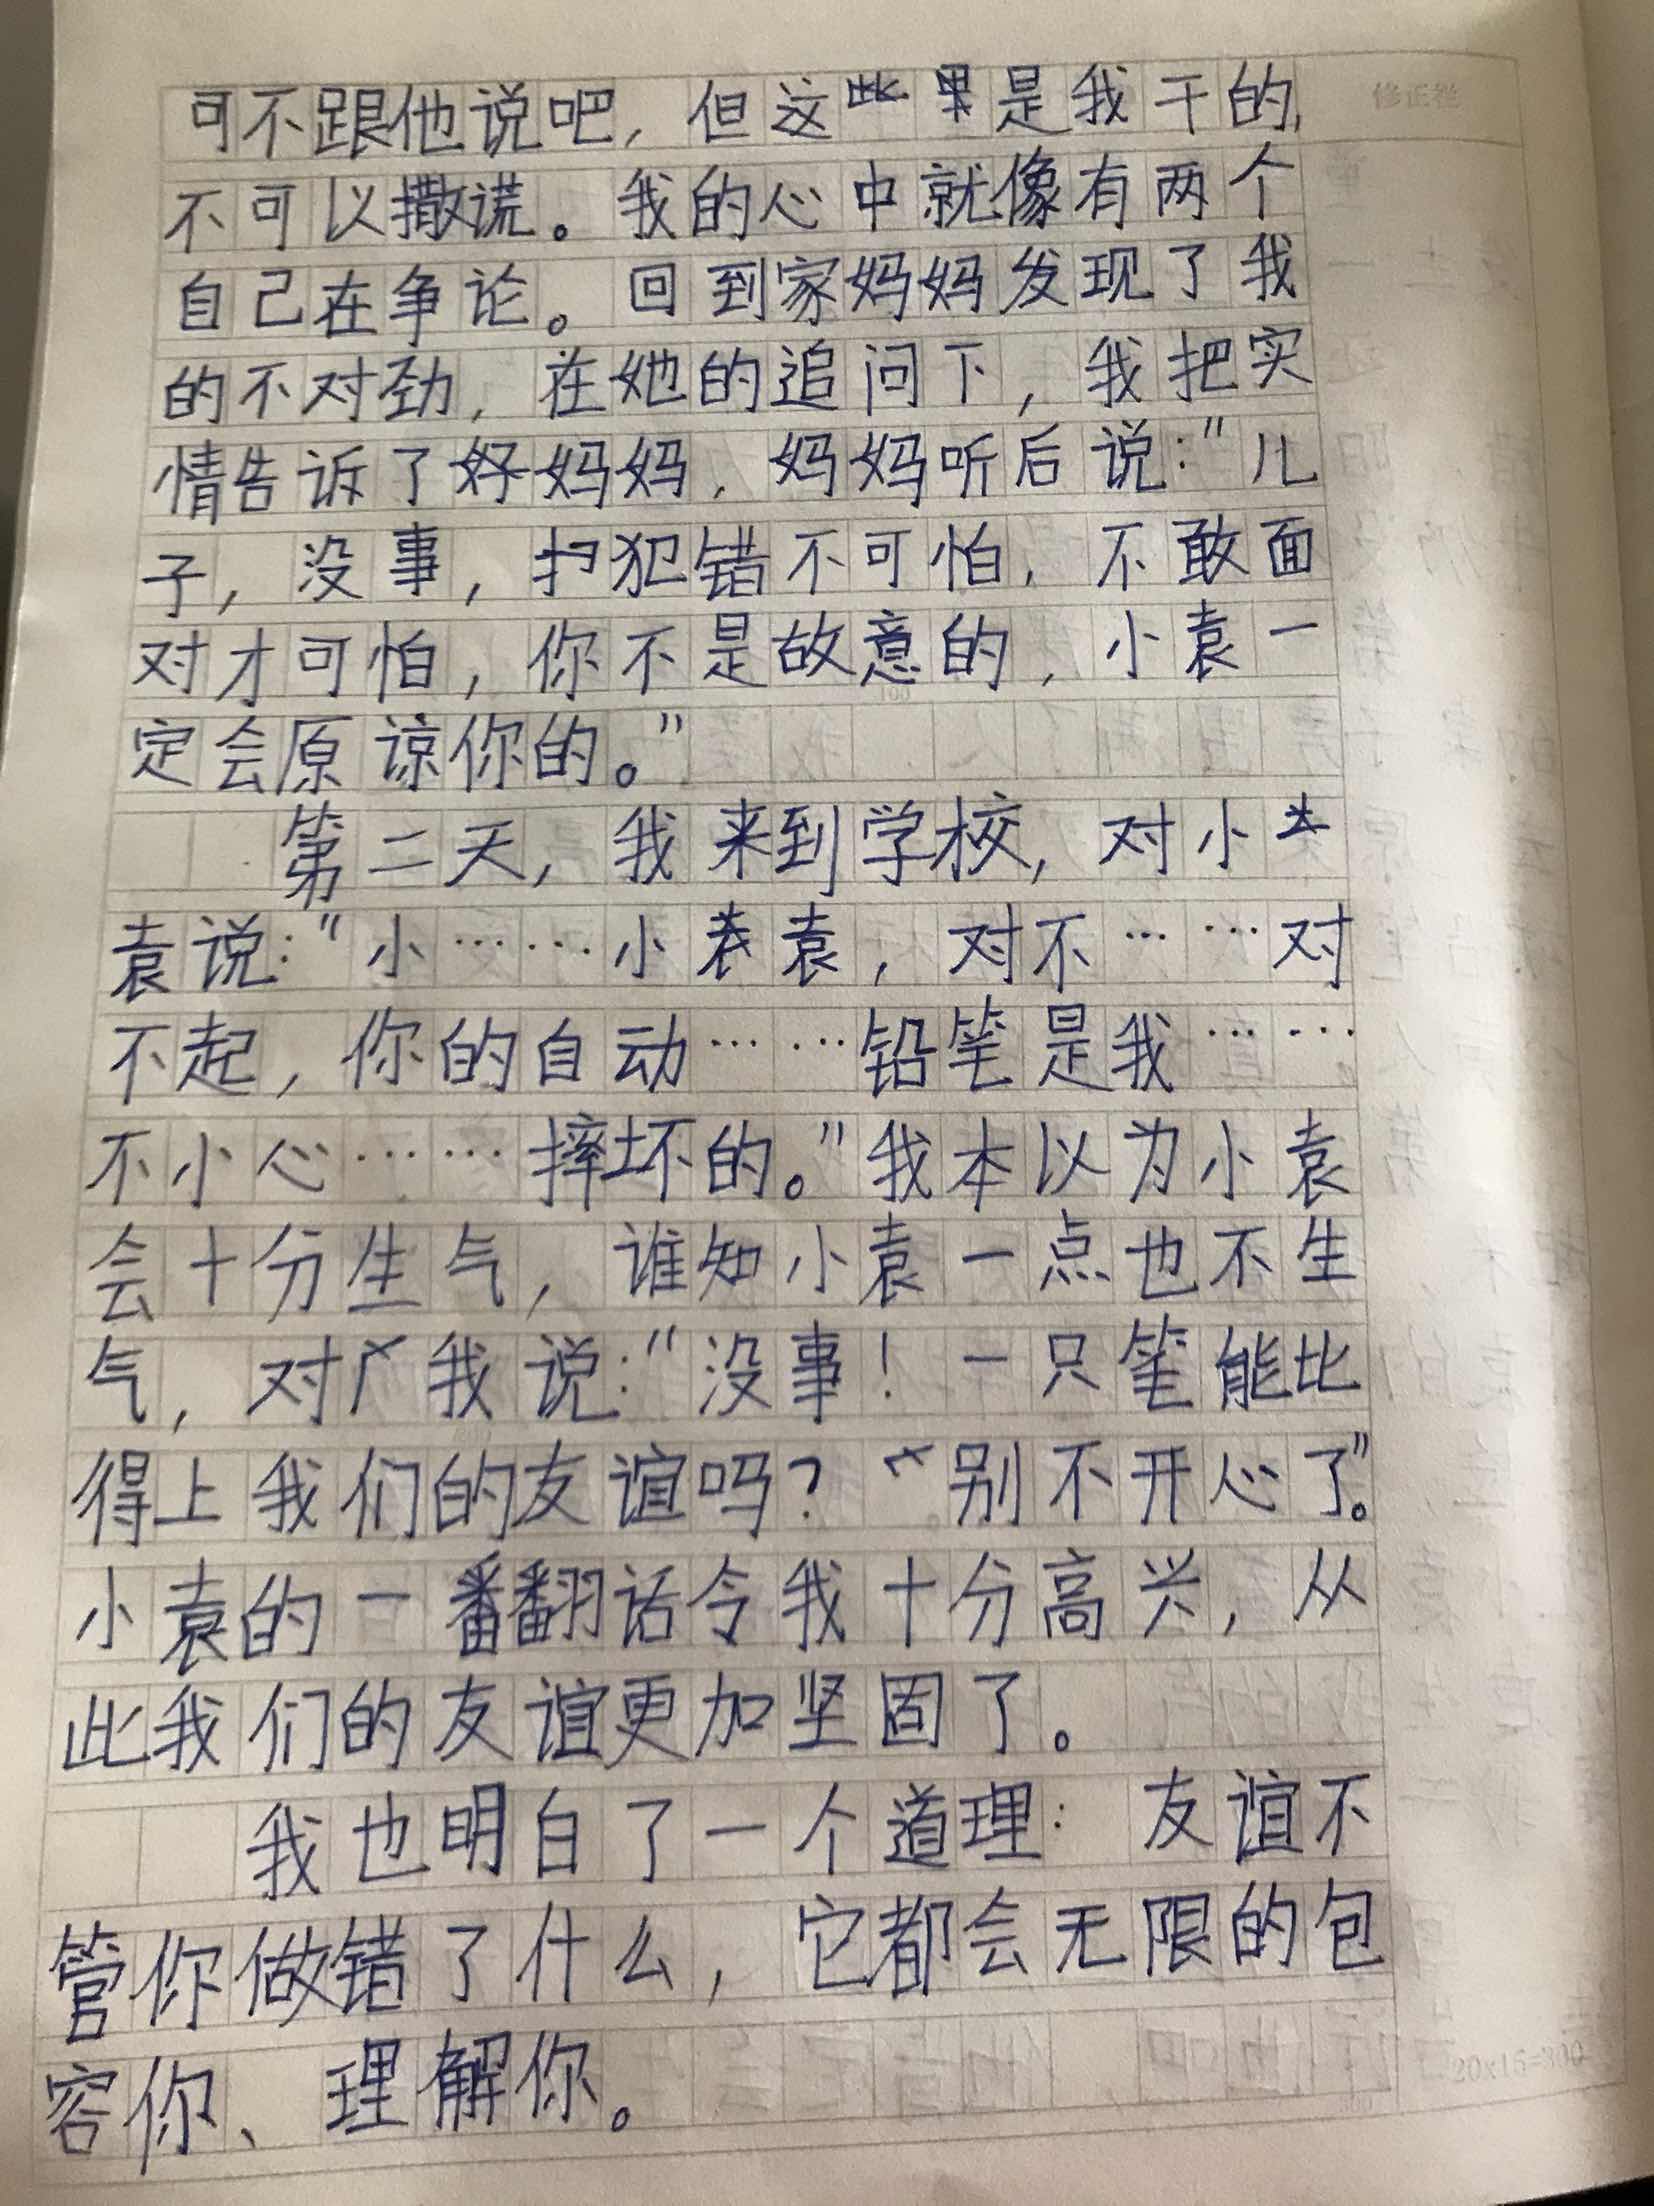 可不跟他说吧，但这些果是我干的，
不可以撒谎。我的心中就像有两个
自己在争论。回到家妈妈发现了我
的不对劲，在她的追问下，我把实
情告诉了妈妈，妈妈听后说：“儿
子，没事，犯错不可怕，不敢面
对才可怕，你不是故意的，小袁一
定会原谅你的。”
第二天，我来到学校，对小
袁说：“小……小袁，对不……对
不起，你的自动……铅笔是我……
不小心……摔坏的。”我本以为小袁
会十分生气，谁知小袁一点也不生
气，对我说：“没事！一只笔能比
得上我们的友谊吗？别不开心了。”
小袁的一番翻话令我十分高兴，从
此我们的友谊更加坚固了。
我也明白了一个道理：友谊不
管你做错了什么，它都会无限的包
容你、理解你。
修正栏
100
20x15=300
300